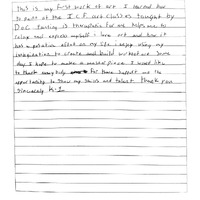 This is my first work of art I learned how
to paint at the I.C.F. art classes taught by
D.O.C. Painting is therapeutic for me helps me to
relax and express myself i love art and how it
has a positive effect on my life. i enjoy using my
imagination to create and build Some
day I hope to make a master piece. I would like
to thank every body for there support and the
opportunity to show my skills and talent. thank you
Sincerely